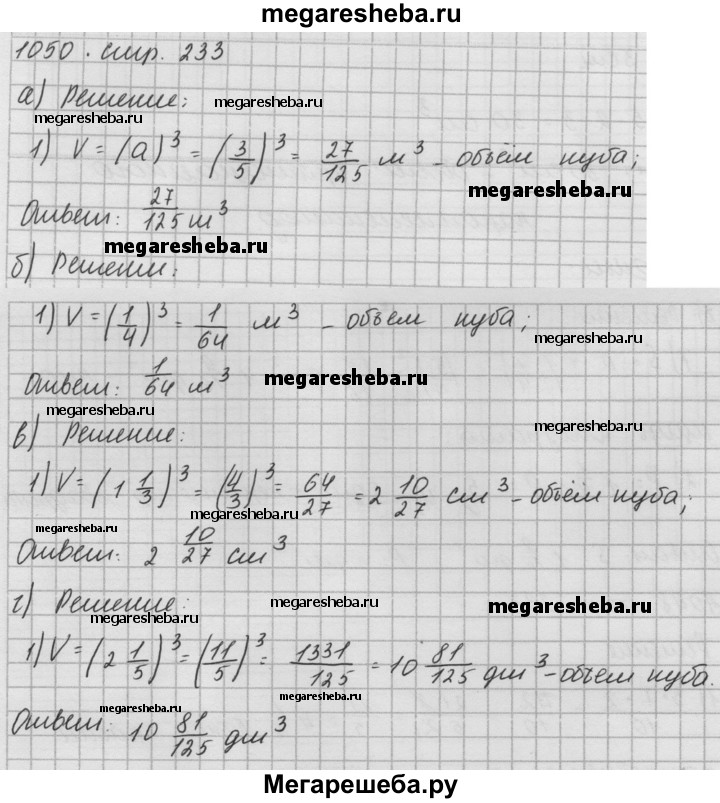 megaresheba.ru
1050. стр. 233
а) Решение: megaresheba.ru
megaresheba.ru
1) V = (a)³ = (3/5)³ = 27/125 м³ - объём куба;
megaresheba.ru
Ответ: 27/125 м³
megaresheba.ru
б) Решение:
1) V = (1/4)³ = 1/64 м³ - объем куба;
megaresheba.ru
Ответ: 1/64 м³ megaresheba.ru
megaresheba.ru
в) Решение: megaresheba.ru
1) V = (1 1/3)³ = (4/3)³ = 64/27 = 2 10/27 см³ - объём куба;
megaresheba.ru
megaresheba.ru
Ответ: 2 10/27 см³
г) Решение: megaresheba.ru megaresheba.ru
megaresheba.ru
1) V = (2 1/5)³ = (11/5)³ = 1331/125 = 10 81/125 дм³ - объем куба.
megaresheba.ru
megaresheba.ru
Ответ: 10 81/125 дм³
megaresheba.ru
Мегарешеба.ру